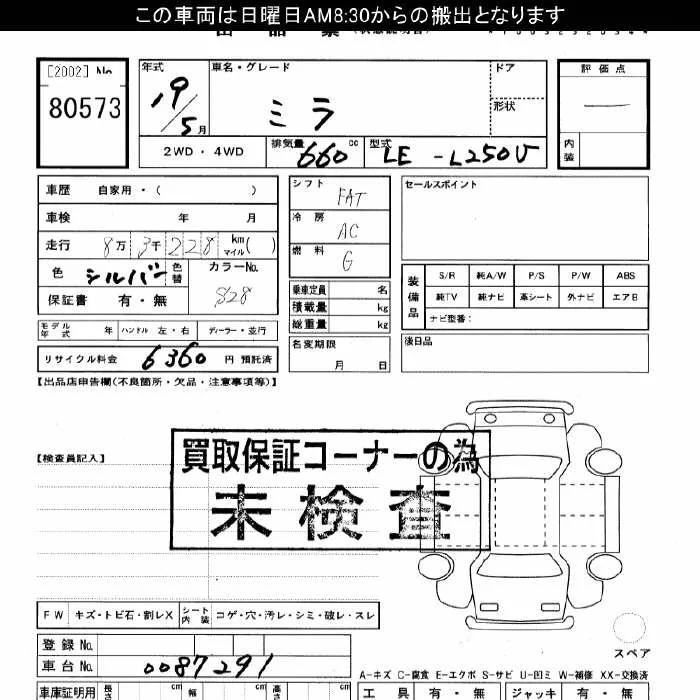 この車両は日曜日AM8:30からの搬出となります
出 品 票 (状態説明書)
[2002] No. 80573
年式 19/5月 車名・グレード ミラ ドア 形状 評価点 — 内装
2WD・4WD 排気量 660 cc 型式 LE-L250V
車歴 自家用・( )
車検 年 月
走行 8万3千228 km マイル( )
色 シルバー 色替 カラーNo. S28
保証書 有・無
モデル年式 年 ハンドル 左・右 ディーラー・並行
リサイクル料金 6360 円 預託済
シフト FAT
冷房 AC
燃料 G
乗車定員 名
積載量 kg
総重量 kg
名変期限 月 日
セールスポイント
装備品 S/R 純A/W P/S P/W ABS
純TV 純ナビ 革シート 外ナビ エアB
ナビ型番:
後日品
【出品店申告欄(不良箇所・欠品・注意事項等)】
【検査員記入】
買取保証コーナーの為
未検査
FW キズ・トビ石・割レX シート内装 コゲ・穴・汚レ・シミ・破レ・スレ
登録No.
車台No. 0087291
スペア
A-キズ C-腐食 E-エクボ S-サビ U-凹ミ W-補修 XX-交換済
車庫証明用 長さ cm 幅 cm 高さ cm 工具 有・無 ジャッキ 有・無